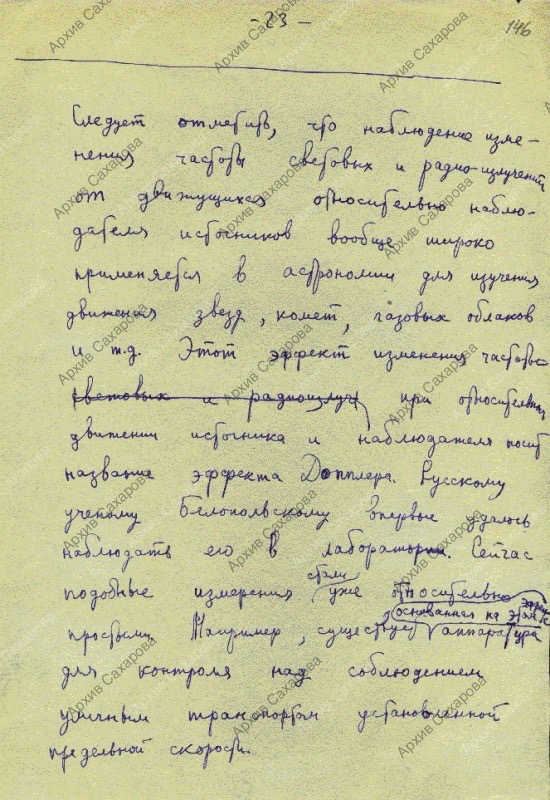 - 23 -
146
Следует отметить, что наблюдение изме-
нения частоты световых и радио-излучений
от движущихся относительно наблю-
дателя источников вообще широко
применяется в астрономии для изучения
движения звезд, комет, газовых облаков
и т.д. Этот эффект изменения частоты
световых и радиоизлуч при относительном
движении источника и наблюдателя носит
название эффекта Допплера. Русскому
ученому Белопольскому впервые удалось
наблюдать его в лаборатории. Сейчас
подобные измерения стали уже относительно
простыми. Например, существует основанная на этом эффекте аппаратура
для контроля над соблюдением
уличным транспортом установленной
предельной скорости.
Архив Сахарова